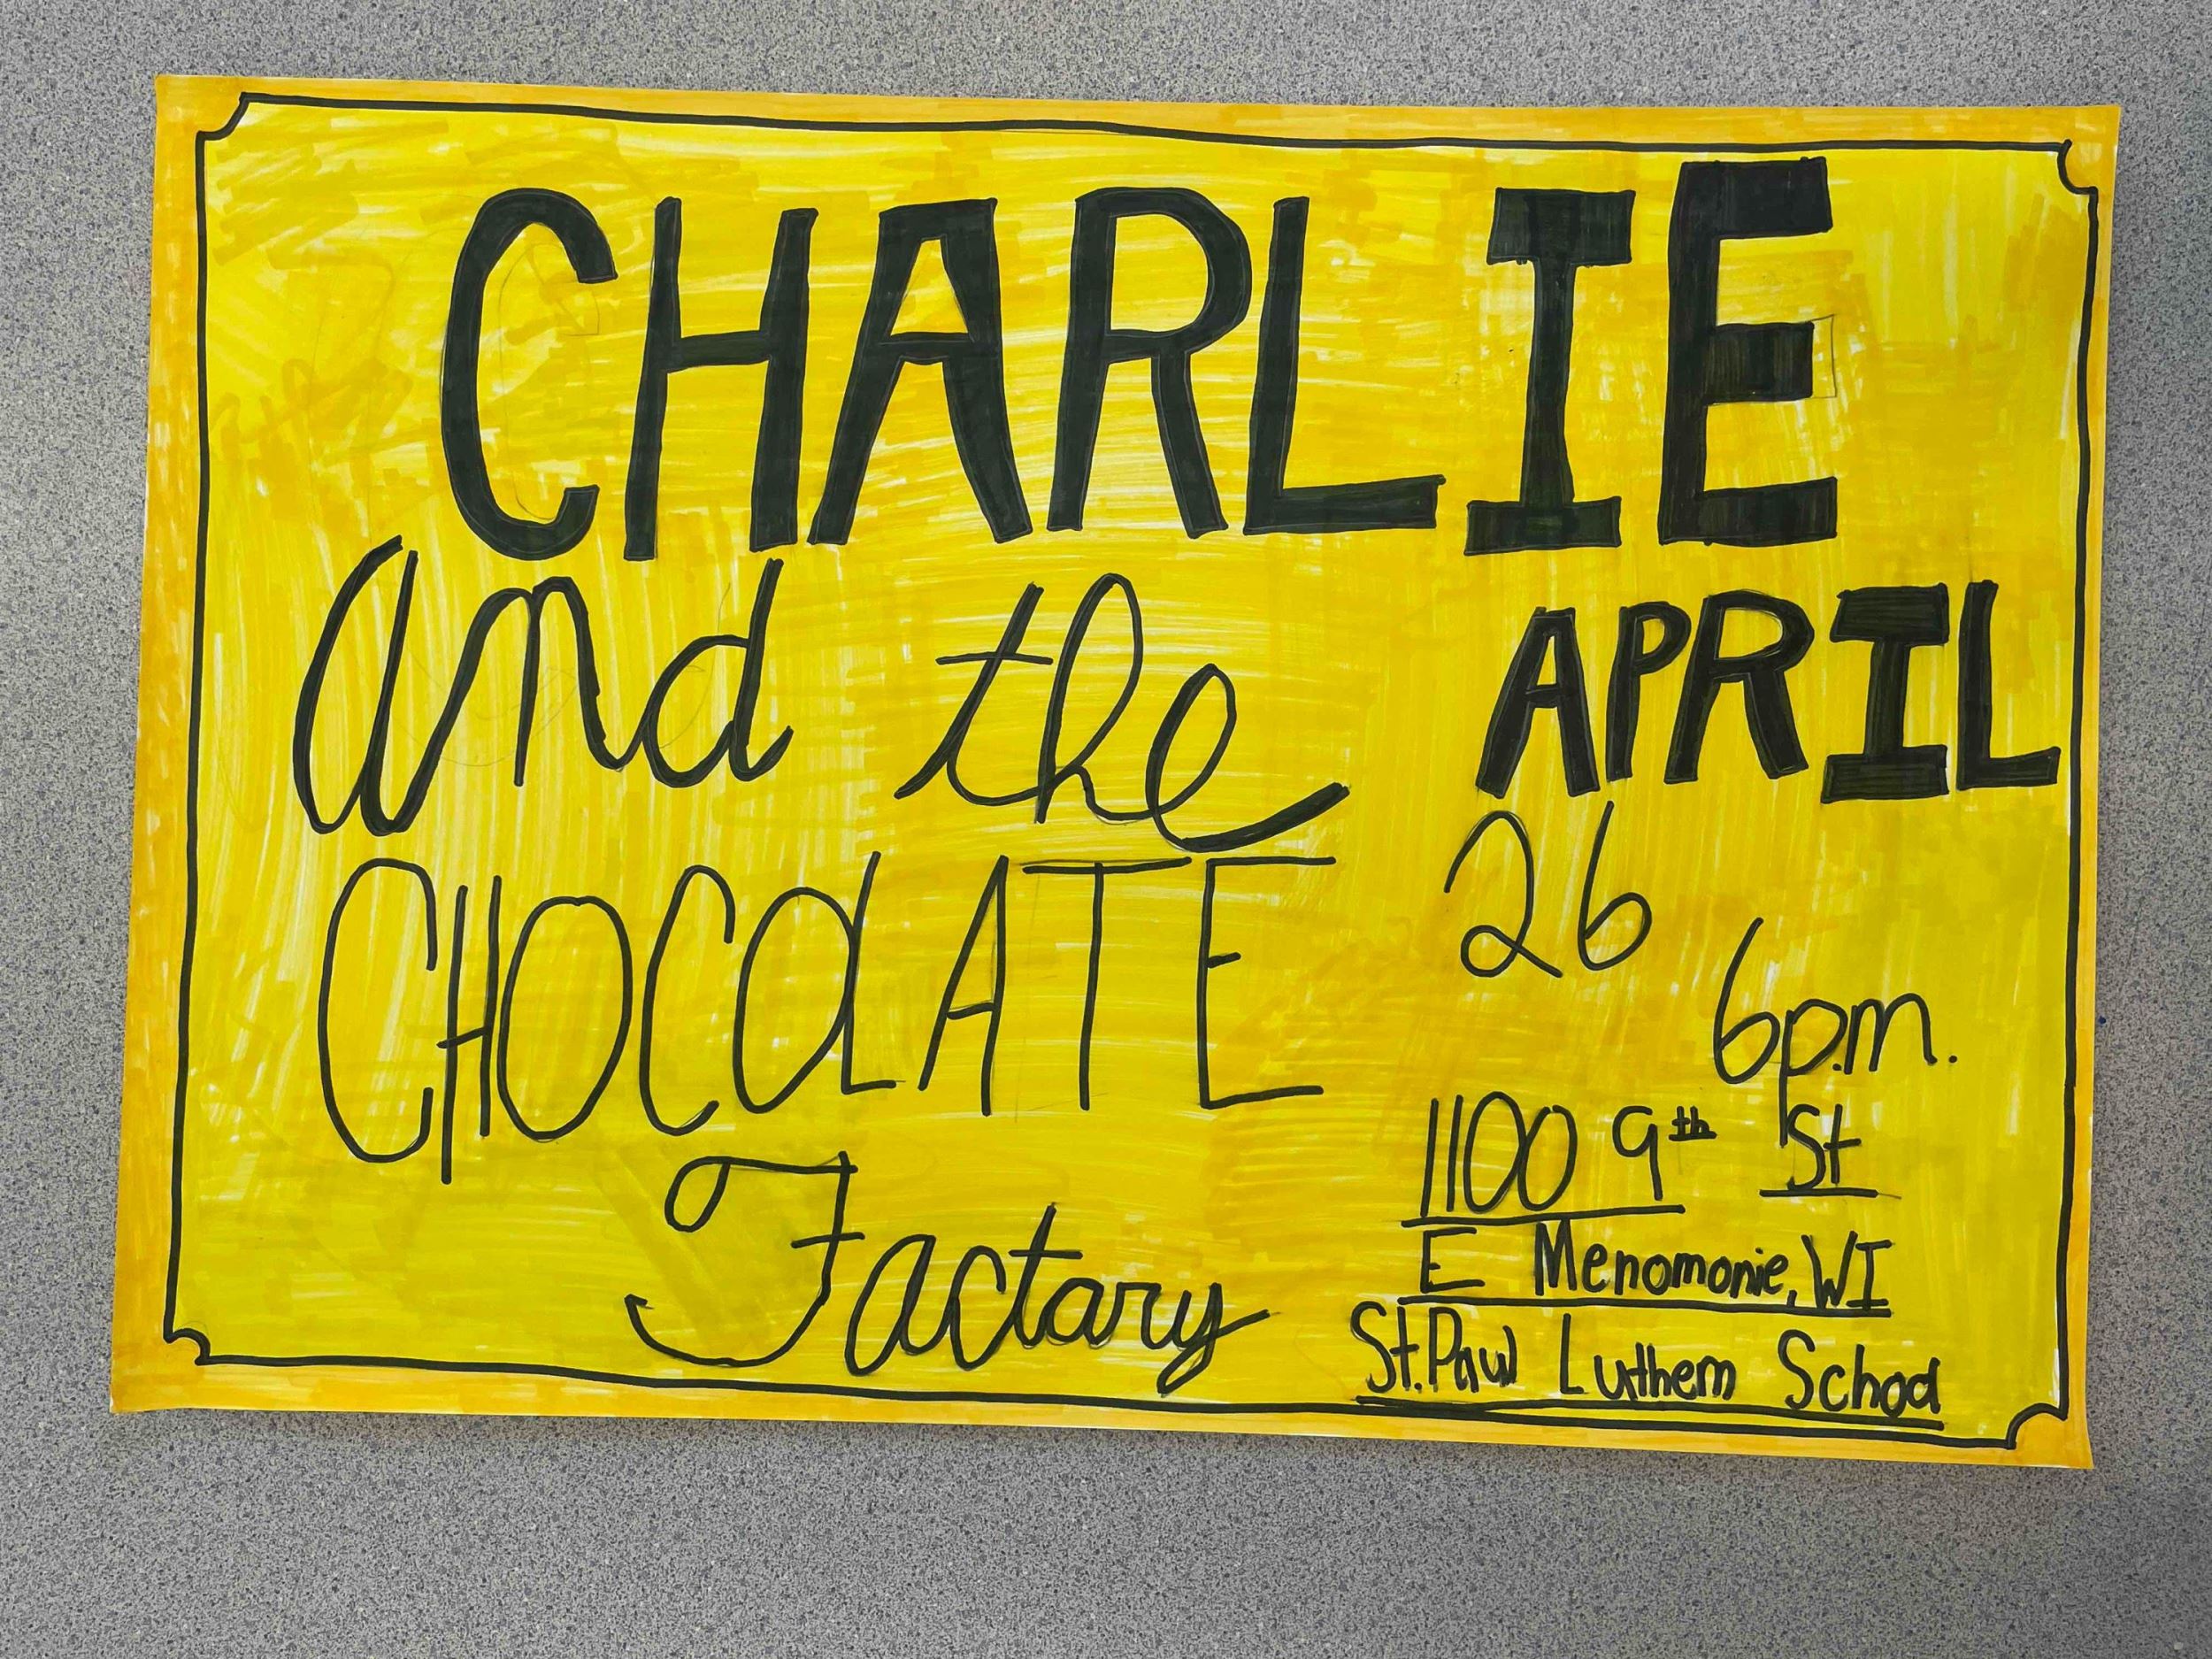 CHARLIE
and the
CHOCOLATE
Factory
APRIL
26
6p.m.
1100 9th St
E Menomonie, WI
St. Paul Luthern School